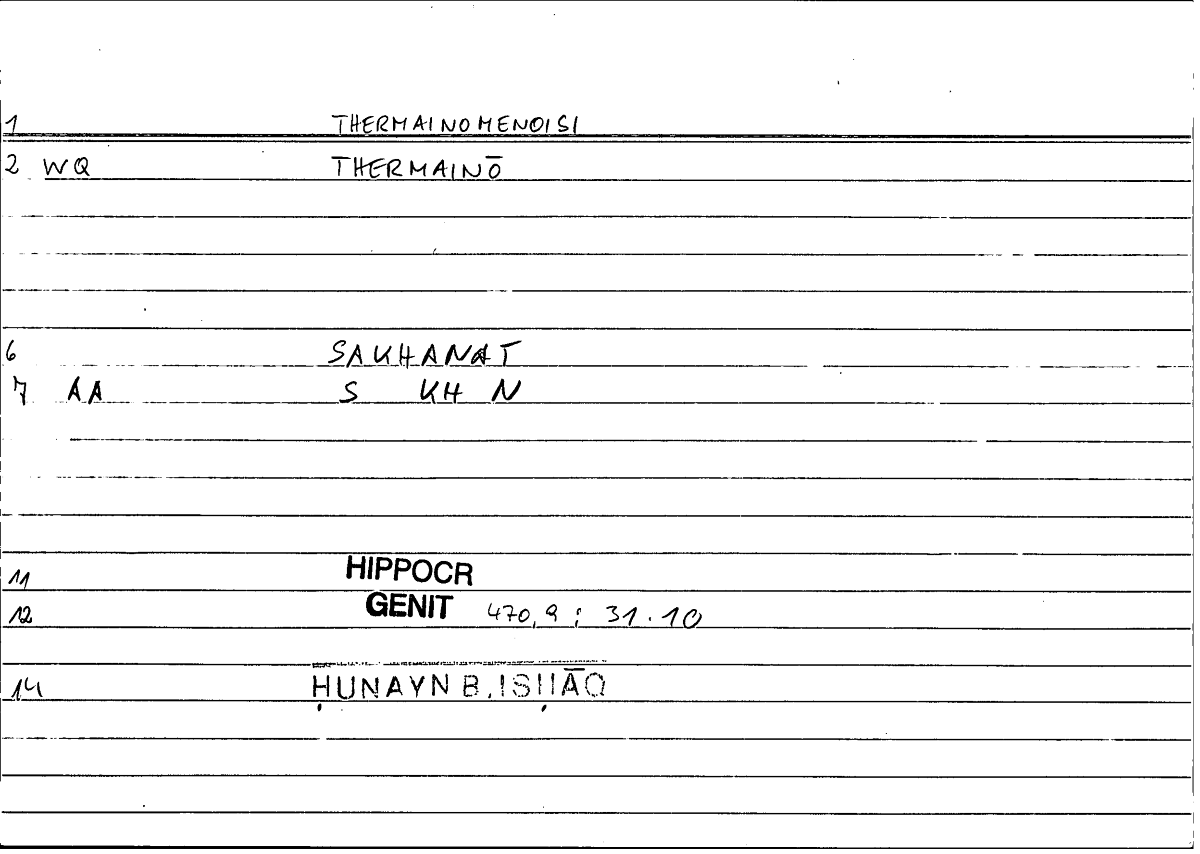 1 THERMAINOMENOISI
2 WQ THERMAINŌ
6 SAKHANAT
7 AA S KH N
11 HIPPOCR
12 GENIT 470,9 ; 31.10
14 ḤUNAYN B. ISḤĀQ